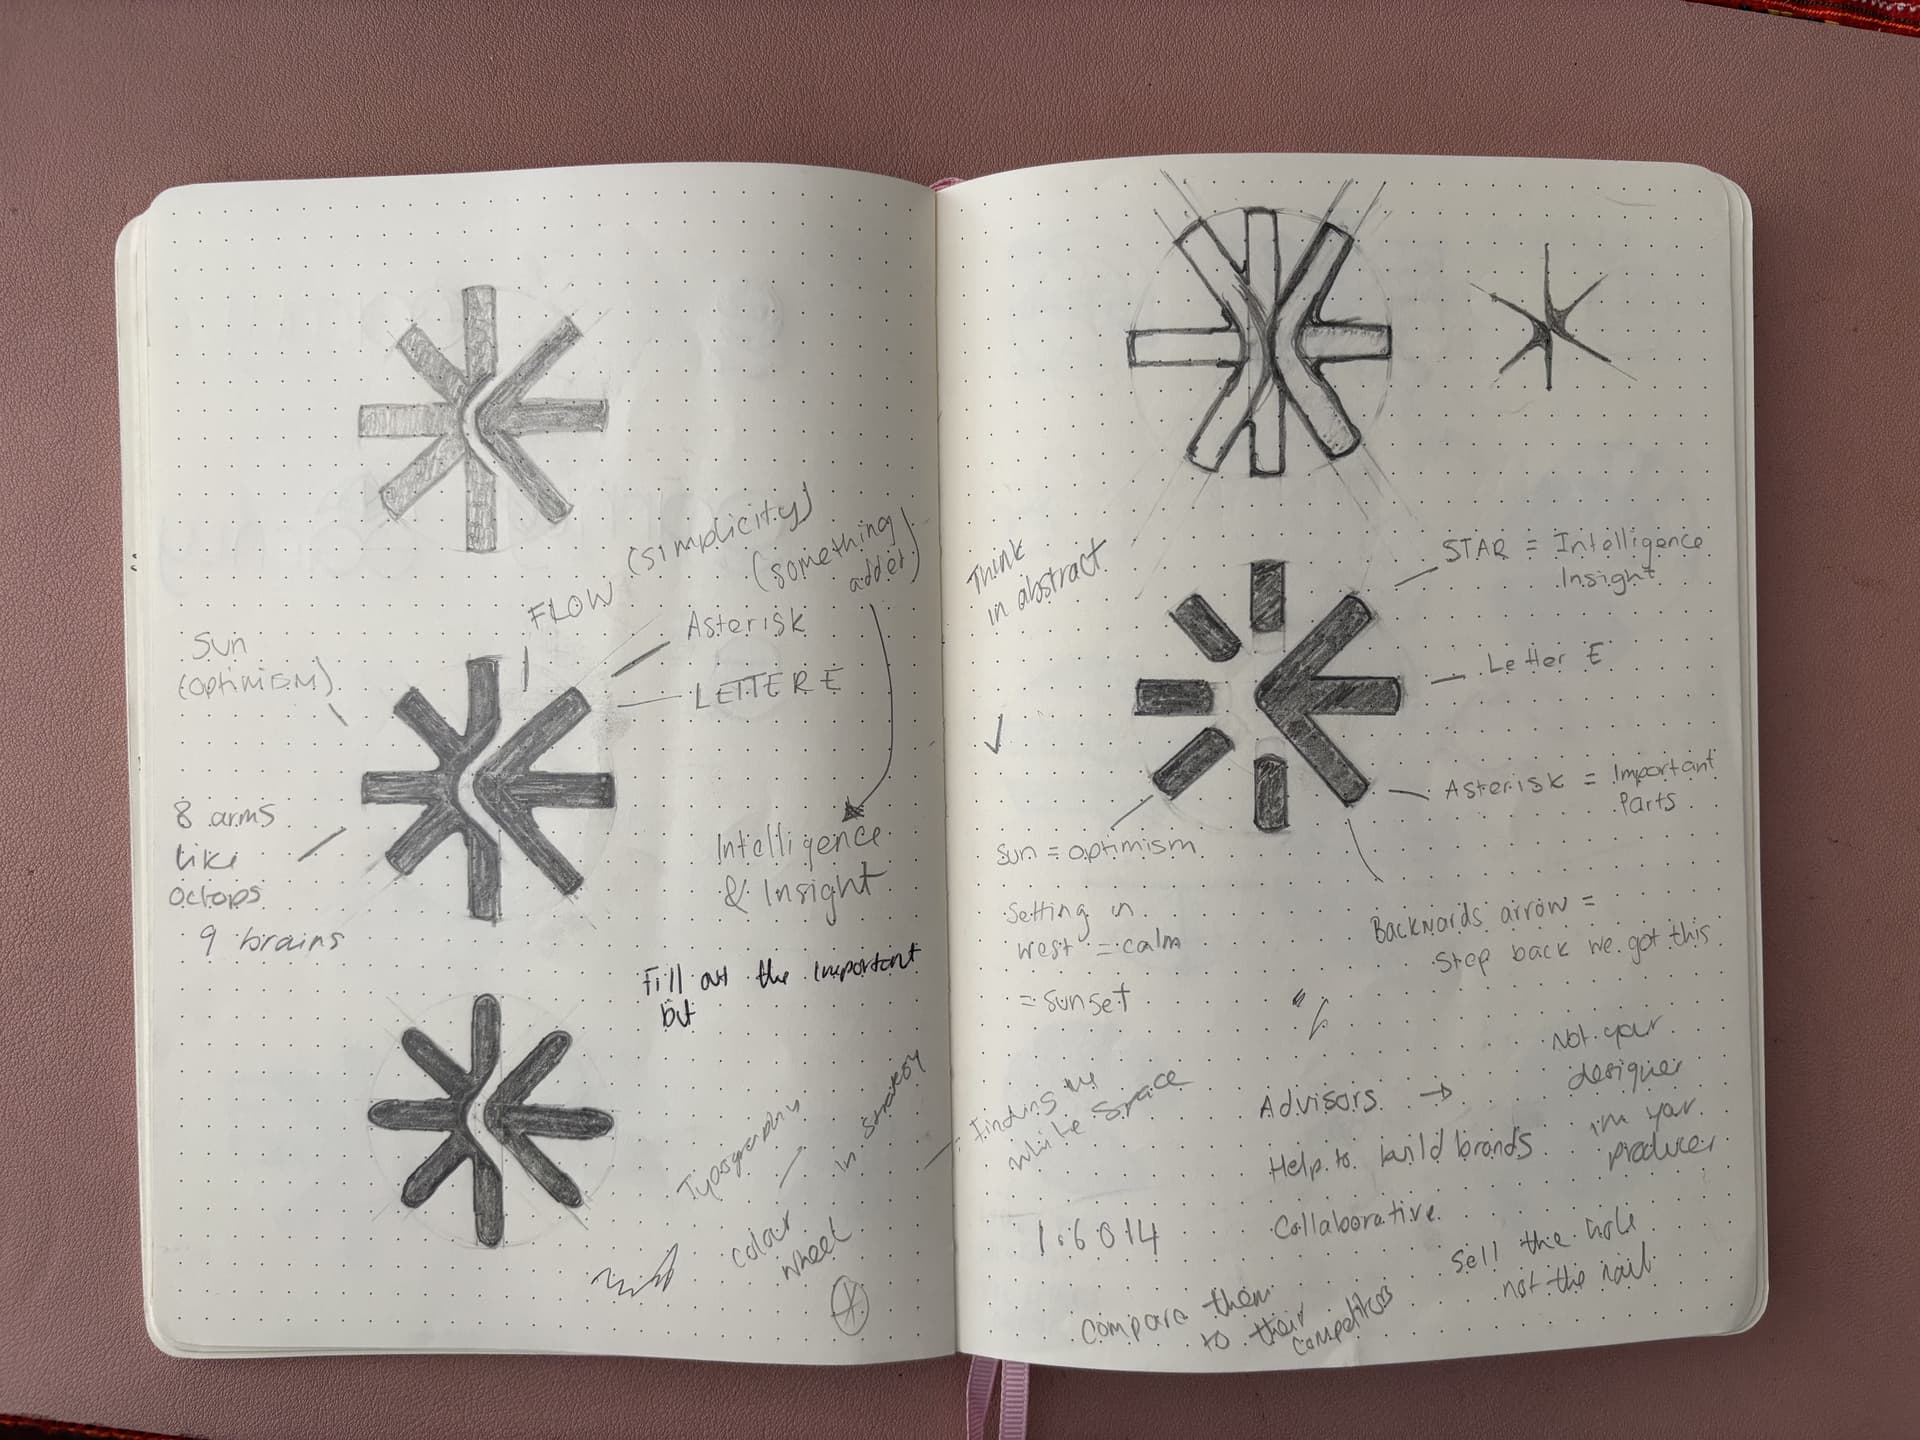 (simplicity)
(something
added)
FLOW
Asterisk
LETTER E
Sun
(optimism)
8 arms
like
octops
9 brains
Intelligence
& Insight
Fill out the important
bit
Typography
colour
wheel
in strategy
Think
in abstract
STAR = Intelligence
Insight
Letter E
Asterisk = Important
Parts
Sun = optimism
Setting in
west = calm
= sunset
Backwards arrow =
Step back we got this
= Finding the
white space
Advisors →
Help to build brands
Collaborative
Not your
designer
im your
producer
1.6014
Sell the hole
not the nail
Compare them
to their
competitors